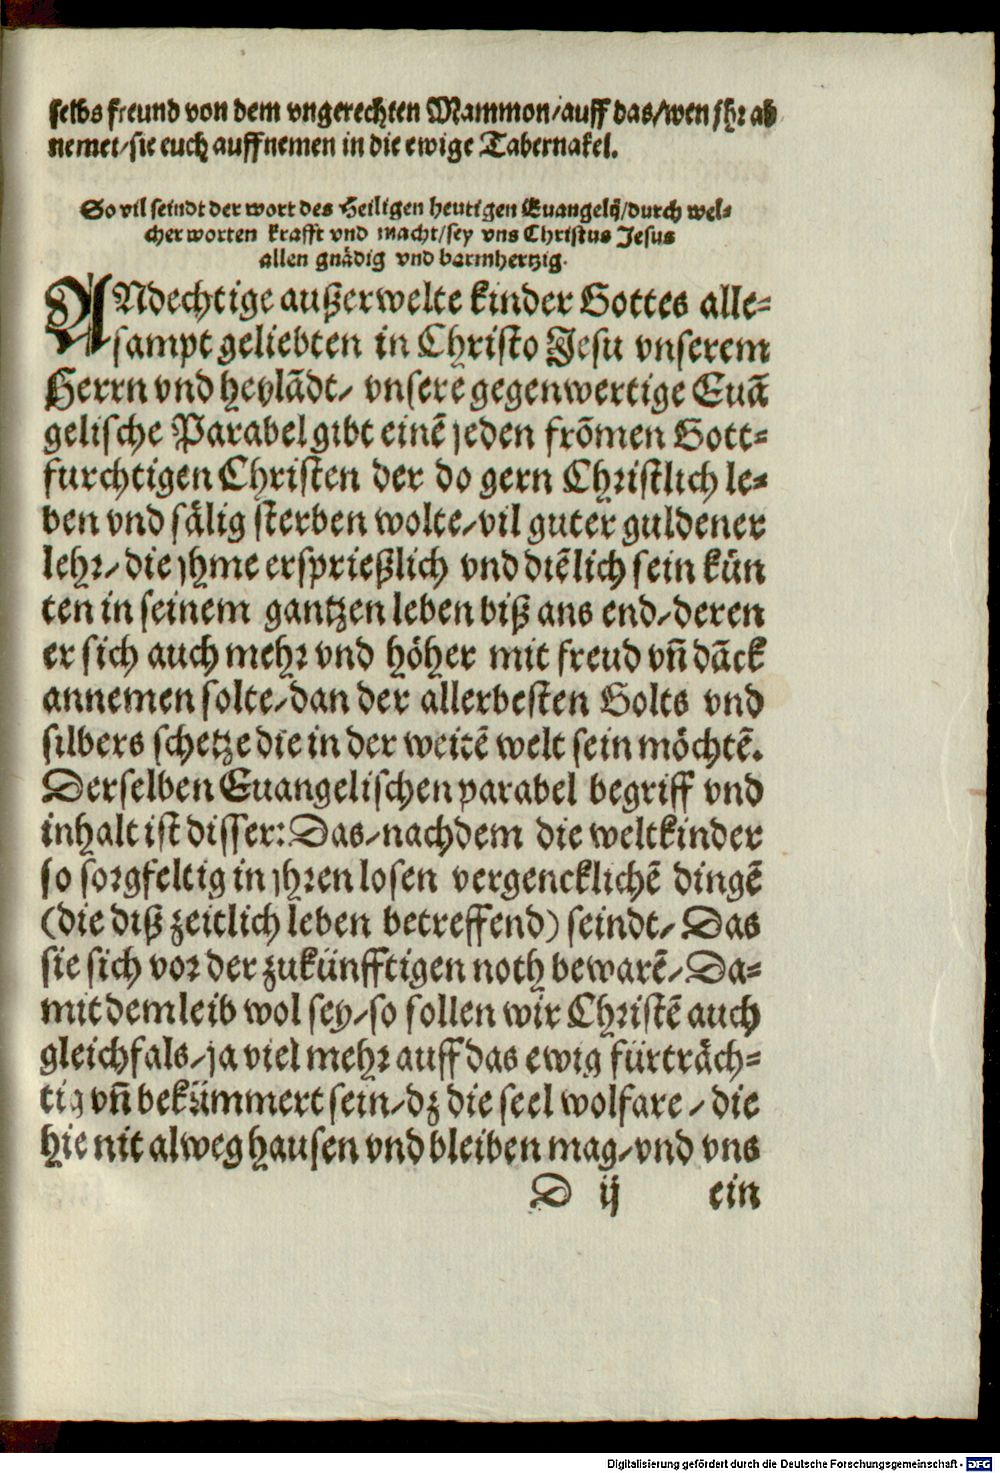 selbs freund von dem vngerechten Mammon/auff das/wen jhr ab
nemet/sie euch auffnemen in die ewige Tabernakel.
So vil seindt der wort des Heiligen heutigen Euangelij/durch wel-
cher worten krafft vnd macht/sey vns Christus Jesus
allen gnädig vnd barmhertzig.
ANdechtige außerwelte kinder Gottes alle-
sampt geliebten in Christo Jesu vnserem
Herrn vnd heylãdt/ vnsere gegenwertige Euã
gelische Parabel gibt einẽ jeden frõmen Gott-
furchtigen Christen der do gern Christlich le-
ben vnd sälig sterben wolte/vil guter guldener
lehr/die jhme ersprießlich vnd diẽlich sein kün
ten in seinem gantzen leben biß ans end/deren
er sich auch mehr vnd höher mit freud vñ dãck
annemen solte/dan der allerbesten Golts vnd
silbers schetze die in der weitẽ welt sein möchtẽ.
Derselben Euangelischen parabel begriff vnd
inhalt ist disser: Das/nachdem die weltkinder
so sorgfeltig in jhren losen vergencklichẽ dingẽ
(die diß zeitlich leben betreffend) seindt/ Das
sie sich vor der zukünfftigen noth bewarẽ/Da-
mit dem leib wol sey/so sollen wir Christẽ auch
gleichfals/ja viel mehr auff das ewig fürträch-
tig vñ bekümmert sein/dz die seel wolfare/die
hie nit alweg hausen vnd bleiben mag/vnd vns
D ij ein
Digitalisierung gefördert durch die Deutsche Forschungsgemeinschaft - DFG